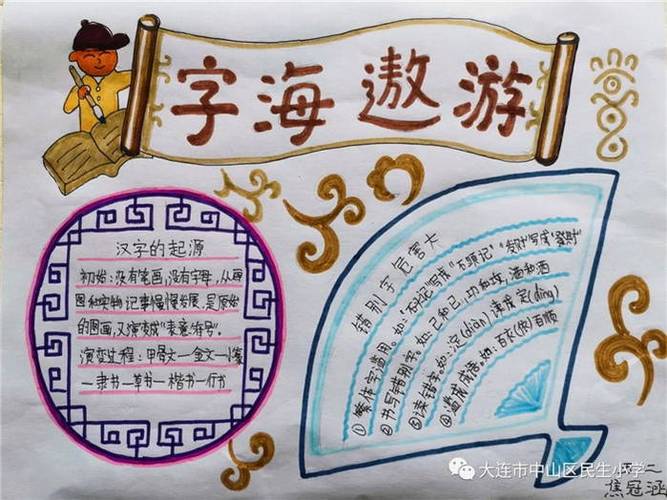 字海遨游
汉字的起源
初始:没有笔画,没有字母,从用
图和实物记事慢慢发展,是原始
的图画,又演变成"表意符号"。
演变过程:甲骨文—金文—小篆
—隶书—草书—楷书—行书
错别字危害大
①繁体字滥用。如:"不记"写成"不頭记"。"发财"写成"發财"
②书写错别字。如:己和已,功和攻,洒和酒
③读错字。如:淀(diàn)读成定(dìng)
④滥成成语。如:百长(依)百顺
大连市中山区民生小学
焦冠涵